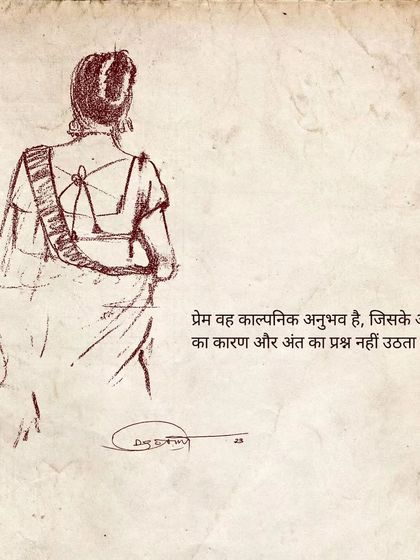 प्रेम वह काल्पनिक अनुभव है, जिसके
का कारण और अंत का प्रश्न नहीं उठता
23